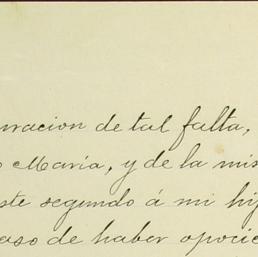 uracion de tal falta,
o María, y de la mis
ste segundo á mi hij
aso de haber oposic